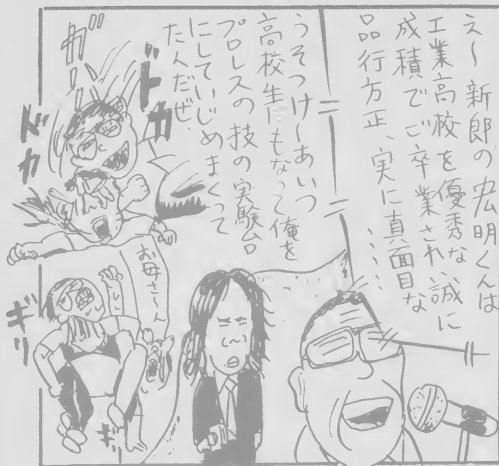 え〜 新郎の宏明くんは
工業高校を優秀な誠に
成績でご卒業され、
品行方正、実に真面目な
‥‥‥
うそつけ〜あいつ
高校生にもなって俺を
プロレスの技の実験台
にしていじめまくって
たんだぜ.
ガー
ドカ
ドカ
お母さ〜ん
ギリ
ギリ